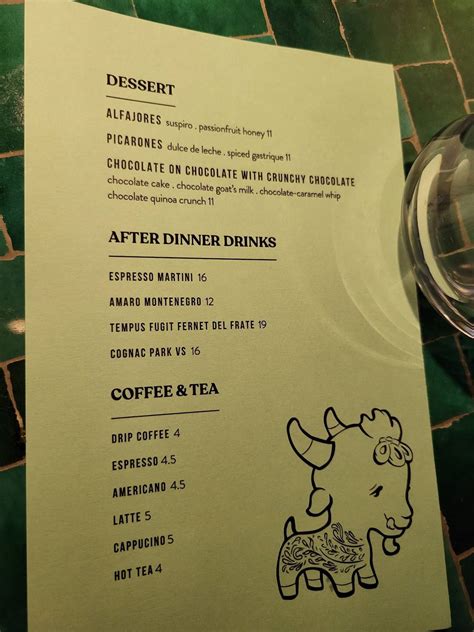 DESSERT
ALFAJORES suspiro . passionfruit honey 11
PICARONES dulce de leche . spiced gastrique 11
CHOCOLATE ON CHOCOLATE WITH CRUNCHY CHOCOLATE
chocolate cake . chocolate goat's milk . chocolate-caramel whip
chocolate quinoa crunch 11
AFTER DINNER DRINKS
ESPRESSO MARTINI 16
AMARO MONTENEGRO 12
TEMPUS FUGIT FERNET DEL FRATE 19
COGNAC PARK VS 16
COFFEE & TEA
DRIP COFFEE 4
ESPRESSO 4.5
AMERICANO 4.5
LATTE 5
CAPPUCINO 5
HOT TEA 4